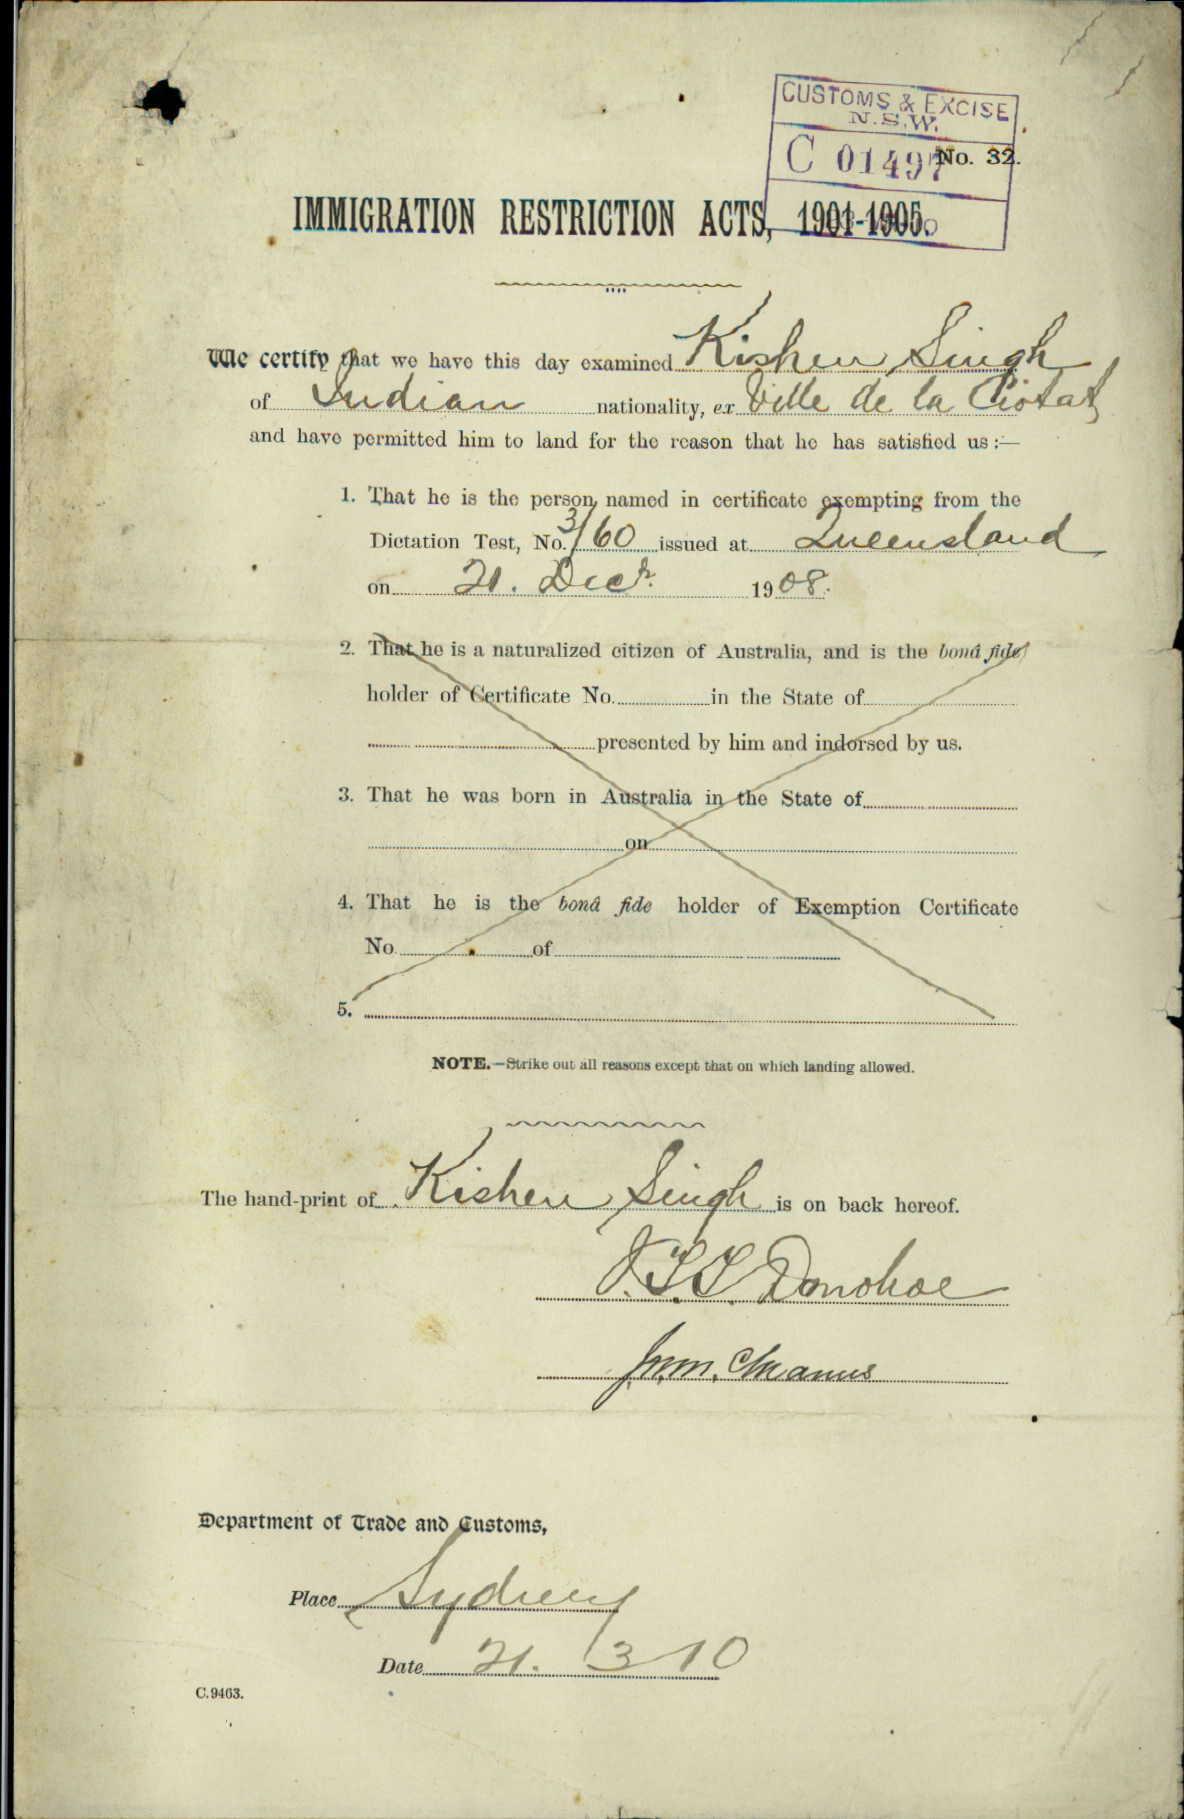 CUSTOMS & EXCISE
N.S.W.
C 01497
No. 32.
IMMIGRATION RESTRICTION ACTS, 1901-1905.
We certify that we have this day examined Kishen Singh
of Indian nationality, ex Ville de la Ciotat
and have permitted him to land for the reason that he has satisfied us:—
1. That he is the person named in certificate exempting from the
Dictation Test, No. 3/60 issued at Queensland
on 21. Decr. 1908.
2. That he is a naturalized citizen of Australia, and is the bonâ fide
holder of Certificate No. in the State of
presented by him and indorsed by us.
3. That he was born in Australia in the State of
on
4. That he is the bonâ fide holder of Exemption Certificate
No. of
5.
NOTE.—Strike out all reasons except that on which landing allowed.
The hand-print of Kishen Singh is on back hereof.
J.T.T. Donohoe
Department of Trade and Customs,
Place Sydney
Date 21. 3 10
C.9463.